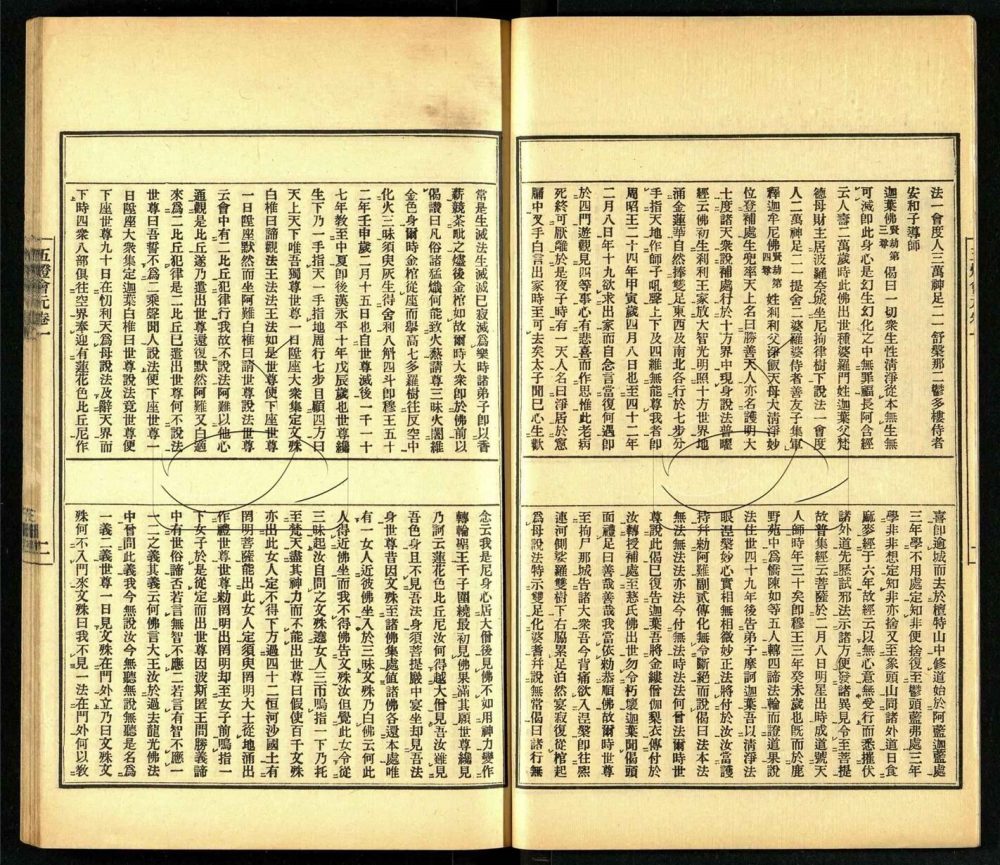 法一會度人三萬神足二一舒槃那二鬱多樓侍者
安和子導師
迦葉佛賢劫第三尊 偈曰一切衆生性清淨從本無生無
可滅即此身心是幻生幻化之中無罪福長阿含經
云人壽二萬歲時此佛出世種婆羅門姓迦葉父梵
德母財主居波羅奈城坐尼拘律樹下說法一會度
人二萬神足二一提舍二婆羅婆侍者善友子集軍
釋迦牟尼佛賢劫第四尊 姓刹利父淨飯天母大清淨妙
位登補處生兜率天上名曰勝善天人亦名護明大
士度諸天衆說補處行於十方界中現身說法普曜
經云佛初生刹利王家放大智光明照十方世界地
涌金蓮華自然捧雙足東西及南北各行於七步分
手指天地作師子吼聲上下及四維無能尊我者即
周昭王二十四年甲寅歲四月八日也至四十二年
二月八日年十九欲求出家而自念言當復何遇即
於四門遊觀見四等事心有悲喜而作思惟此老病
死終可厭離於是夜子時有一天人名曰淨居於窻
牖中叉手白言出家時至可去矣太子聞已心生歡
喜即逾城而去於檀特山中修道始於阿藍迦藍處
三年學不用處定知非便捨復至鬱頭藍弗處三年
學非非想定知非亦捨又至象頭山同諸外道日食
麻麥經于六年故經云以無心意無受行而悉摧伏
諸外道先歷試邪法示諸方便發諸異見令至菩提
故普集經云菩薩於二月八日明星出時成道號天
人師時年三十矣即穆王三年癸未歲也既而於鹿
野苑中爲憍陳如等五人轉四諦法輪而證道果說
法住世四十九年後告弟子摩訶迦葉吾以清淨法
眼涅槃妙心實相無相微妙正法將付於汝汝當護
持并勅阿難副貳傳化無令斷絕而說偈曰法本法
無法無法法亦法今付無法時法法何曾法爾時世
尊說此偈已復告迦葉吾將金縷僧伽棃衣傳付於
汝轉授補處至慈氏佛出世勿令朽壞迦葉聞偈頭
面禮足曰善哉善哉我當依勅恭順佛故爾時世尊
至拘尸那城告諸大衆吾今背痛欲入涅槃即往熙
連河側娑羅雙樹下右脇累足泊然宴寂復從棺起
爲母說法特示雙足化婆耆并說無常偈曰諸行無
常是生滅法生滅滅已寂滅爲樂時諸弟子即以香
薪競茶毗之燼後金棺如故爾時大衆即於佛前以
偈讚曰凡俗諸猛熾何能致火爇請尊三昧火闍維
金色身爾時金棺從座而舉高七多羅樹往反空中
化火三昧須臾灰生得舍利八斛四斗即穆王五十
二年壬申歲二月十五日也自世尊滅後一千一十
七年教至中夏即後漢永平十年戊辰歲也世尊纔
生下乃一手指天一手指地周行七步目顧四方曰
天上天下唯吾獨尊世尊一日陞座大衆集定文殊
白椎曰諦觀法王法法王法如是世尊便下座世尊
一日陞座默然而坐阿難白椎曰請世尊說法世尊
云會中有二比丘犯律行我故不說法阿難以他心
通觀是比丘遂乃遣出世尊還復默然阿難又白適
來爲二比丘犯律是二比丘已遣出世尊何不說法
世尊曰吾誓不爲二乘聲聞人說法便下座世尊一
日陞座大衆集定迦葉白椎曰世尊說法竟世尊便
下座世尊九十日在忉利天爲母說法及辭天界而
下時四衆八部俱往空界奉迎有蓮花色比丘尼作
念云我是尼身心居大僧後見佛不如用神力變作
轉輪聖王千子圍繞最初見佛果滿其願世尊纔見
乃訶云蓮花色比丘尼汝何得越大僧見吾汝雖見
吾色身且不見吾法身須菩提巖中宴坐却見吾法
身世尊昔因文殊至諸佛集處值諸佛各還本處唯
有一女人近彼佛坐入於三昧文殊乃白佛云何此
人得近佛坐而我不得佛告文殊汝但覺此女令從
三昧起汝自問之文殊遶女人三帀鳴指一下乃托
至梵天盡其神力而不能出世尊曰假使百千文殊
亦出此女人定不得下方過四十二恒河沙國土有
罔明菩薩能出此女人定須臾罔明大士從地涌出
作禮世尊世尊勅罔明出罔明却至女子前鳴指一
下女子於是從定而出世尊因波斯匿王問勝義諦
中有世俗諦否若言無智不應二若言有智不應一
一二之義其義云何佛言大王汝於過去龍光佛法
中曾問此義我今無說汝今無聽無說無聽是名爲
一義二義世尊一日見文殊在門外立乃曰文殊文
殊何不入門來文殊曰我不見一法在門外何以教
五燈會元卷一